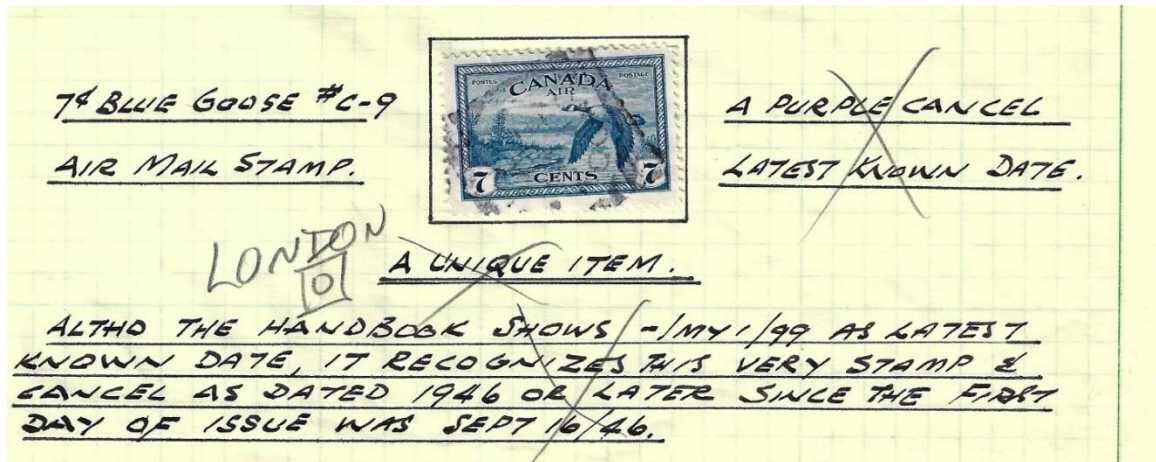 7¢ BLUE GOOSE #C-9
AIR MAIL STAMP.
POSTES POSTAGE
CANADA
AIR
7 CENTS 7
A PURPLE CANCEL
LATEST KNOWN DATE.
LONDON
O
A UNIQUE ITEM.
ALTHO THE HANDBOOK SHOWS -/MY 1/99 AS LATEST
KNOWN DATE, IT RECOGNIZES THIS VERY STAMP &
CANCEL AS DATED 1946 OR LATER SINCE THE FIRST
DAY OF ISSUE WAS SEPT 16/46.